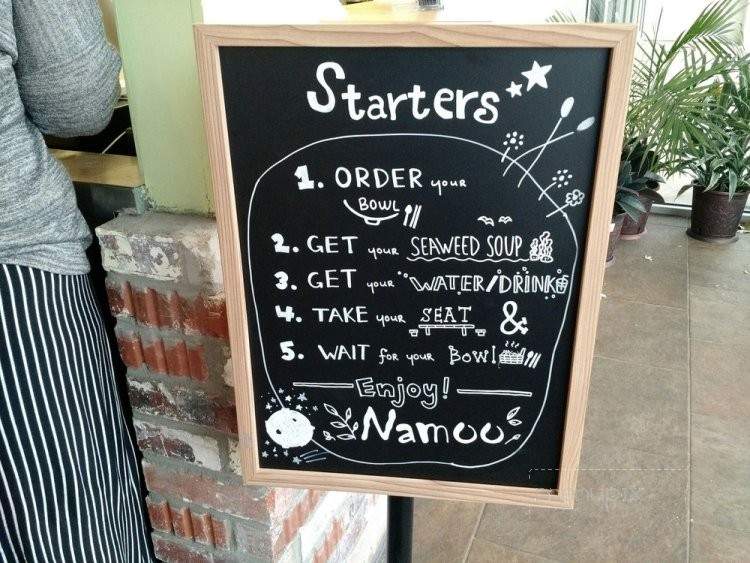 Starters
1. ORDER your
BOWL
2. GET your SEAWEED SOUP
3. GET your WATER/DRINK
4. TAKE your SEAT &
5. WAIT for your BOWl
Enjoy!
Namoo